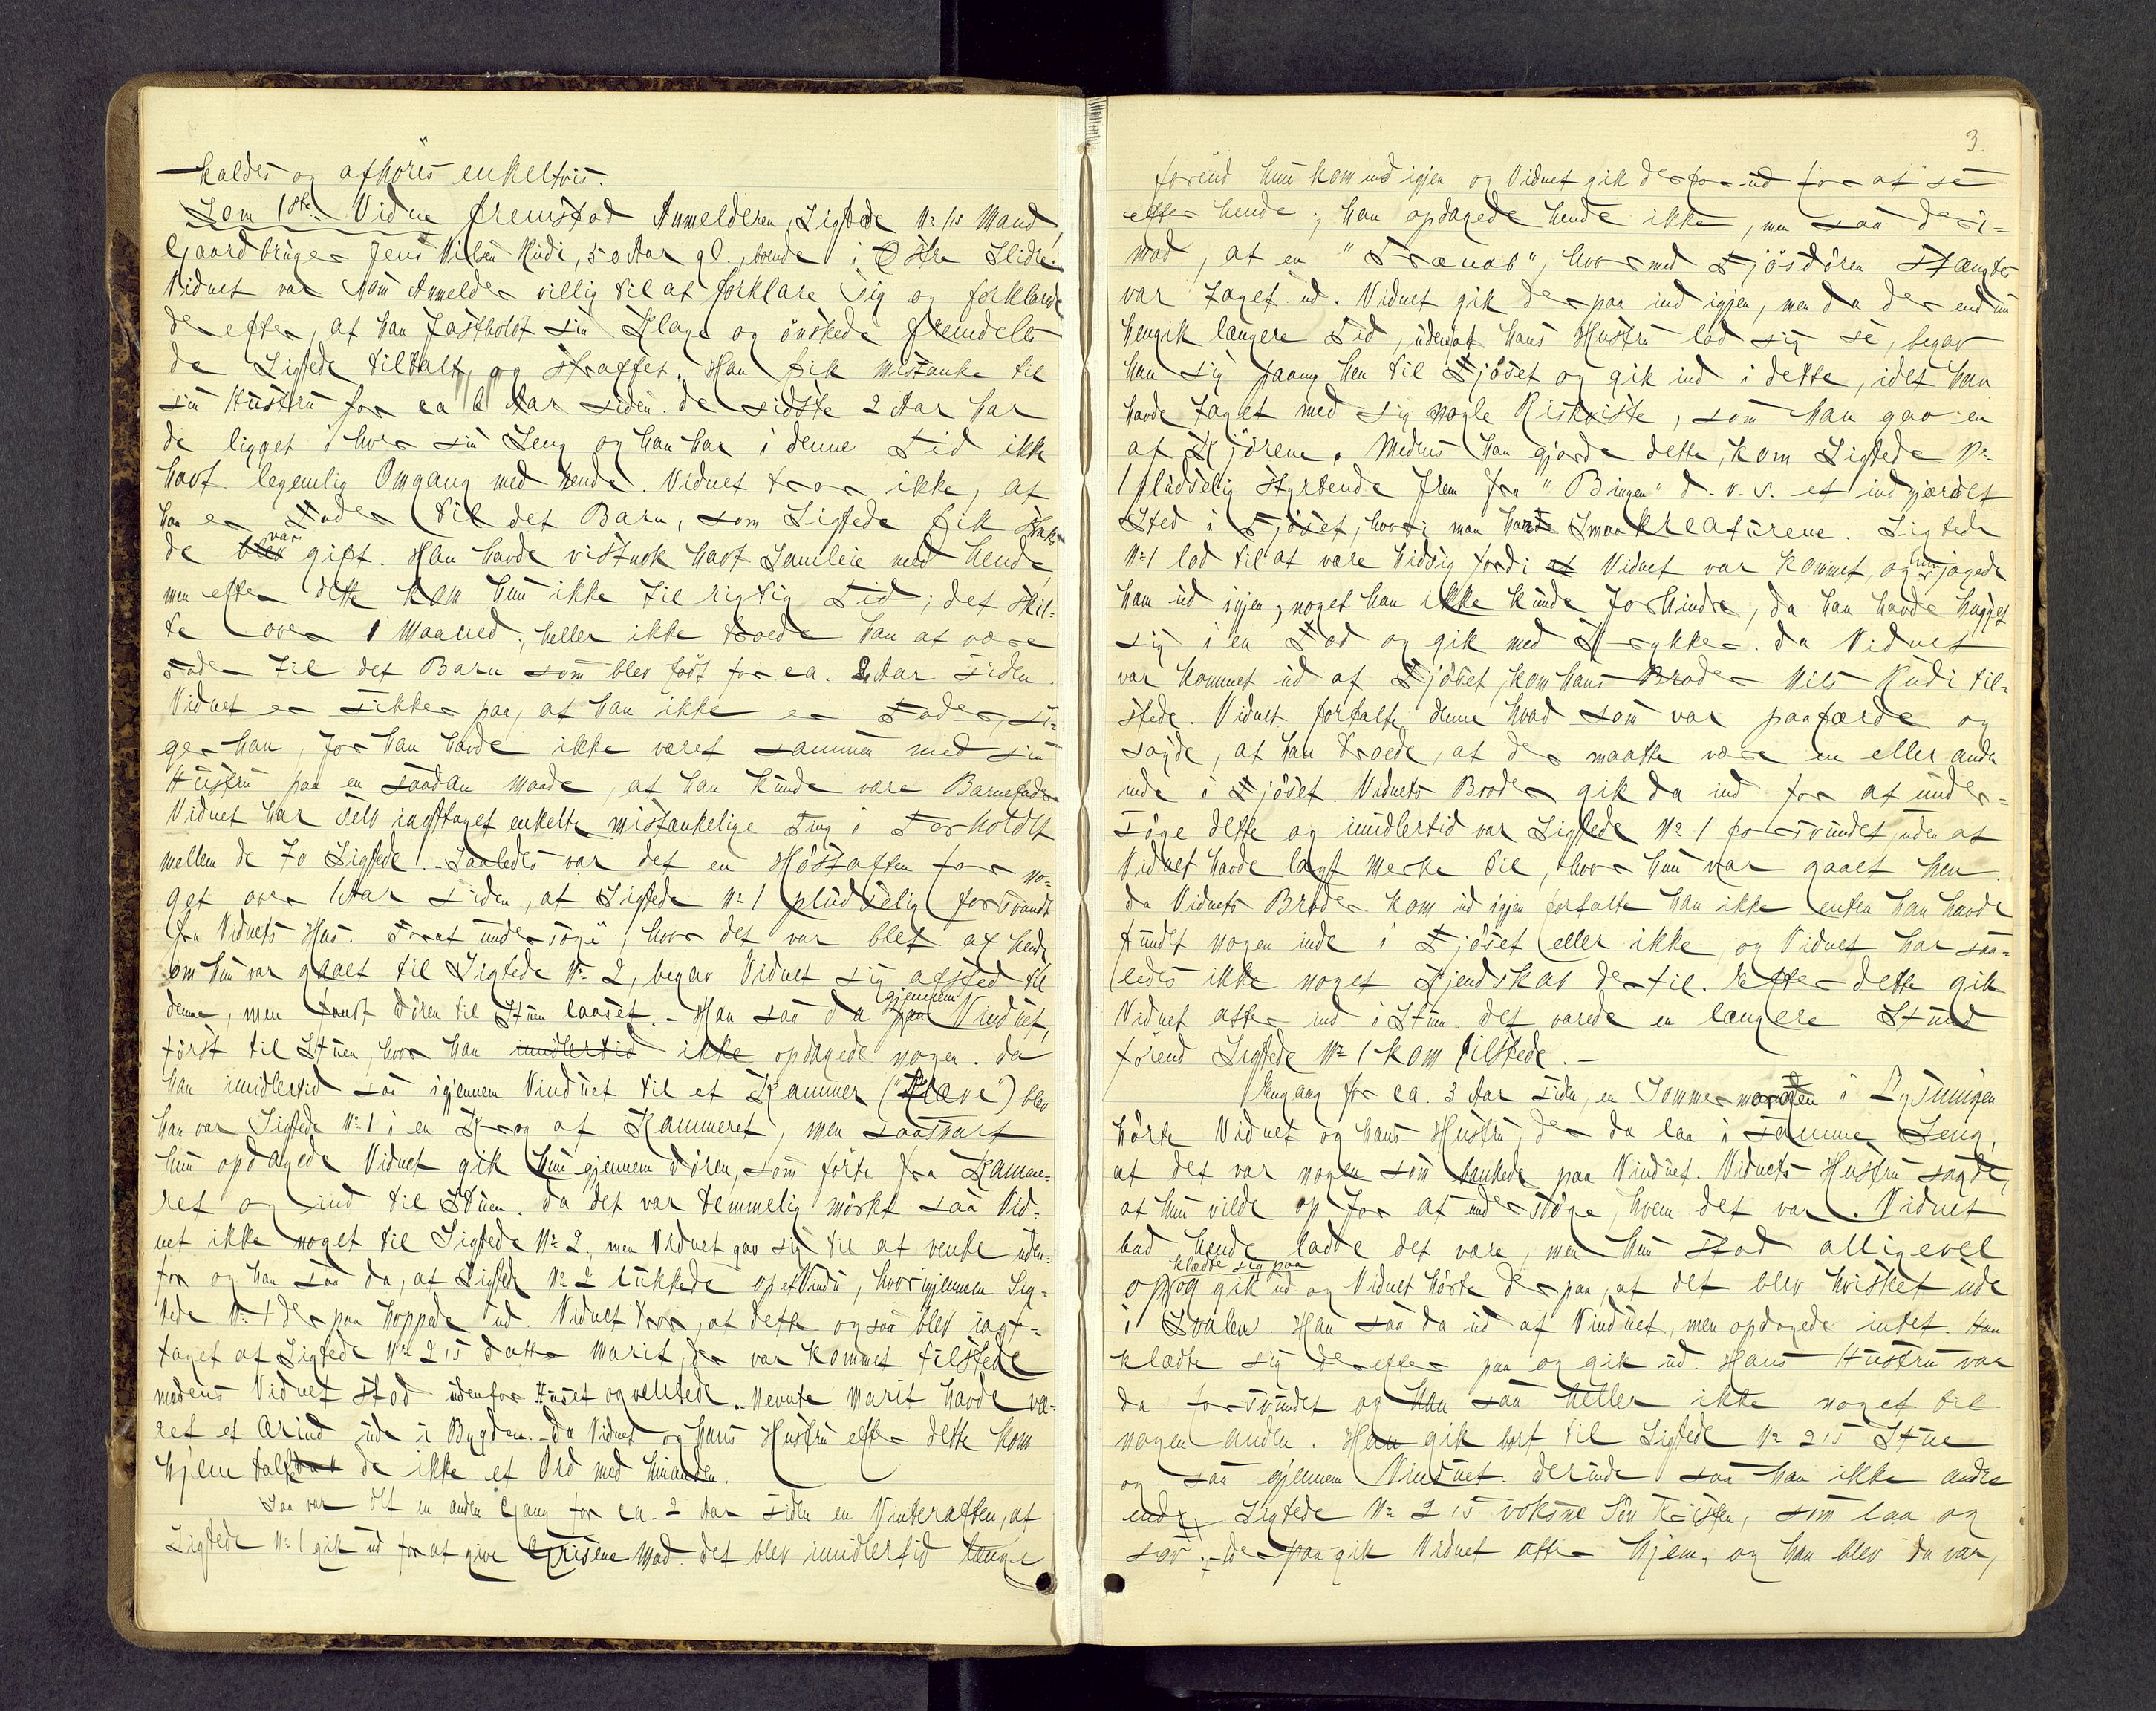 kaldes og afhöres enkeltvis.
Som 1ste Vidne fremstod Anmelderen, Sigtede No 1s Mand,
Gaardbruger Jens Nilsen Rudi, 50 Aar gl., boende i Östre Slidre.
Vidnet var som Anmelder villig til at forklare sig og forklarede
derefter, at han fastholdt sin Klage og önskede fremdeles
de Sigtede tiltalt og straffet. Han fik Mistanke til
sin Hustru for ca 6 Aar siden. De sidste 2 Aar har
de ligget i hver sin Seng og han har i denne Tid ikke
havt legemlig Omgang med hende. Vidnet tror ikke, at
han er Fader til det Barn, som Sigtede fik strax
de blev var gift. Han havde vistnok havt Samleie med hende,
men efter dette kom hun ikke til rigtig Tid; det skil-
te over 1 Maaned; heller ikke troede han at være
Fader til det Barn som blev födt for ca. 2 Aar siden.
Vidnet er sikker paa, at han ikke er Fader, si-
ger han, for han havde ikke været sammen med sin
Hustru paa en saadan Maade, at han kunde være Barnefader.
Vidnet har selv iagttaget enkelte mistænkelige Ting i Forholdet
mellem de to Sigtede. - Saaledes var det en Höstaften for no-
get over 1 Aar siden, at Sigtede No 1 pludselig forsvandt
fra Vidnets Hus. Forat undersöge, hvor det var blet af hende
om hun var gaaet til Sigtede No 2, begav Vidnet sig afsted til
denne, men fandt Dören til Stuen laaset. - Han saa da gjennem paa Vinduet,
först til Stuen, hvor han imidlertid ikke opdagede nogen. Da
han imidlertid saa igjennem Vinduet til et Kammer ("Kleve") blev
han var Sigtede No 1 i en Krog af Kammeret, men saasnart
hun opdagede Vidnet gik hun gjennem Dören, som förte fra Kamme-
ret og ind til Stuen. Da det var temmelig mörkt saa Vid-
net ikke noget til Sigtede No 2, men Vidnet gav sig til at vente uden-
for og han saa da, at Sigtede No 2 lukkede op et Vindu, hvorigjennem Sig-
tede No 1 derpaa hoppede ud. Vidnet tror, at dette ogsaa blev iagt-
taget af Sigtede No 2's Datter Marit, der var kommet tilstede
medens Vidnet stod udenfor Huset og ventede. Nevnte Marit havde væ-
ret et Ærind ude i Bygden. - Da Vidnet og hans Hustru efter dette kom
hjem talte de ikke et Ord med hinanden.
Saa var det en anden Gang for ca. 2 Aar siden en Vinteraften, at
Sigtede No 1 gik ud for at give Grisene Mad. Det blev imidlertid længe
3.
förend hun kom ind igjen og Vidnet gik derfor ud for at se
efter hende; han opdagede hende ikke, men saa der i-
mod, at en "Tranob", hvormed Fjösdören stængtes
var taget ud. Vidnet gik derpaa ind igjen, men da der endnu
hengik længere Tid, uden at hans Hustru lod sig se, begav
han sig paany hen til Fjöset og gik ind i dette, idet han
havde taget med sig nogle Riskviste, som han gav en
af Kjörene. Medens han gjorde dette, kom Sigtede No
1 pludselig styrtende frem fra "Bingen" d. v. s. et indgjærdet
Sted i Fjöset, hvori man havde Smaakreaturene. Sigtede
No 1 lod til at være hidsig fordi at Vidnet var kommet, og hun jagede
ham ud igjen, noget han ikke kunde forhindre, da han havde hugget
sig i en Fod og gik med Krykker. Da Vidnet
var kommet ud af Fjöset, kom hans Broder Nils Rudi til-
stede. Vidnet fortalte denne hvad som var paafærde og
sagde, at han troede, at der maatte være en eller anden
inde i Fjöset. Vidnets Broder gik da ind for at under-
söge dette og imidlertid var Sigtede No 1 forsvundet, uden at
Vidnet havde lagt Merke til, hvor hun var gaaet hen.
Da Vidnets Broder kom ud igjen fortalte han ikke enten han havde
fundet nogen inde i Fjöset eller ikke, og Vidnet har saa-
ledes ikke noget Kjendskab dertil. Efter dette gik
Vidnet atter ind i Stuen. Det varede en længere Stund
förend Sigtede No 1 kom tilstede. -
Engang for ca. 3 Aar siden, en Sommermorgen i Lysningen
hörte Vidnet og hans Hustru, der da laa i samme Seng,
at det var nogen som bankede paa Vinduet. Vidnets Hustru sagde,
at hun vilde op for at undersöge, hvem det var. Vidnet
bad hende lade det være, men hun stod alligevel
klædte sig paa
op og gik ud og Vidnet hörte derpaa, at det blev hvisket ude
i Svalen. Han saa da ud af Vinduet, men opdagede intet. Han
klædte sig derefter paa og gik ud. Hans Hustru var
da forsvundet og han saa heller ikke noget til
nogen anden. Han gik bort til Sigtede No 2's Stue
og saa gjennem Vinduet. Derinde saa han ikke andre
end Sigtede No 2's voksne Sön Kristen, som laa og
sov. - Derpaa gik Vidnet atter hjem, og han blev da var,